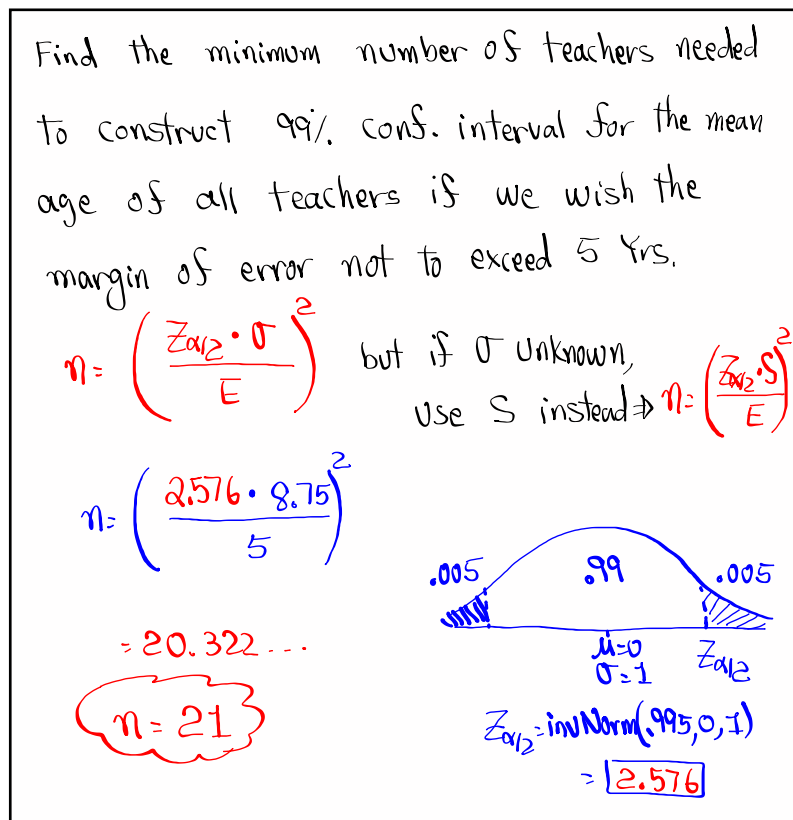 Find the minimum number of teachers needed
to construct 99% conf. interval for the mean
age of all teachers if we wish the
margin of error not to exceed 5 Yrs.
n = (Zα/2 · σ / E)²
but if σ unknown,
use S instead ⇒ n = (Zα/2 · S / E)²
n = (2.576 · 8.75 / 5)²
.005 .99 .005
μ=0
σ=1
Zα/2
= 20.322...
n = 21
Zα/2 = invNorm(.995,0,1)
= 2.576